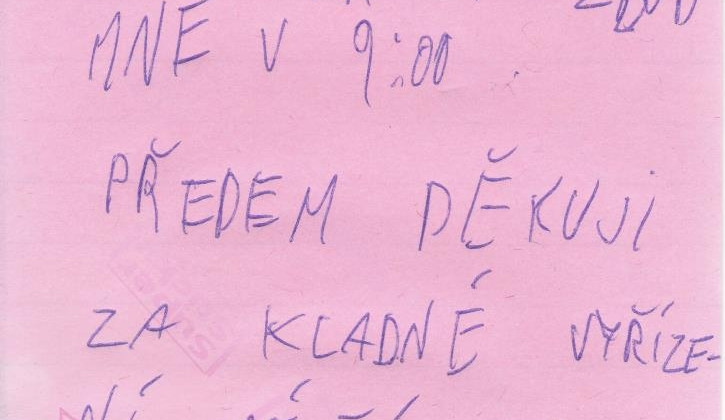 MNE V 9:00.
PŘEDEM DĚKUJI
ZA KLADNÉ VYŘÍZE-
NÍ